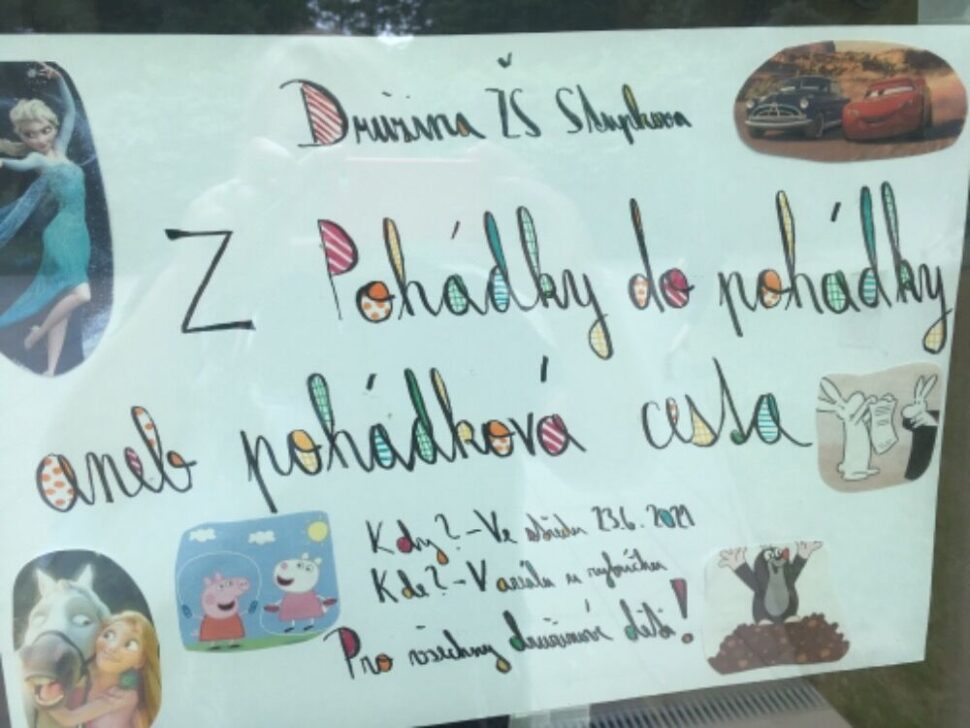 Družina ZŠ Stupkova
Z Pohádky do pohádky
aneb pohádková cesta
Kdy? - Ve středu 23.6. 2021
Kde? - V areálu u rybníčku
Pro všechny družinové děti!